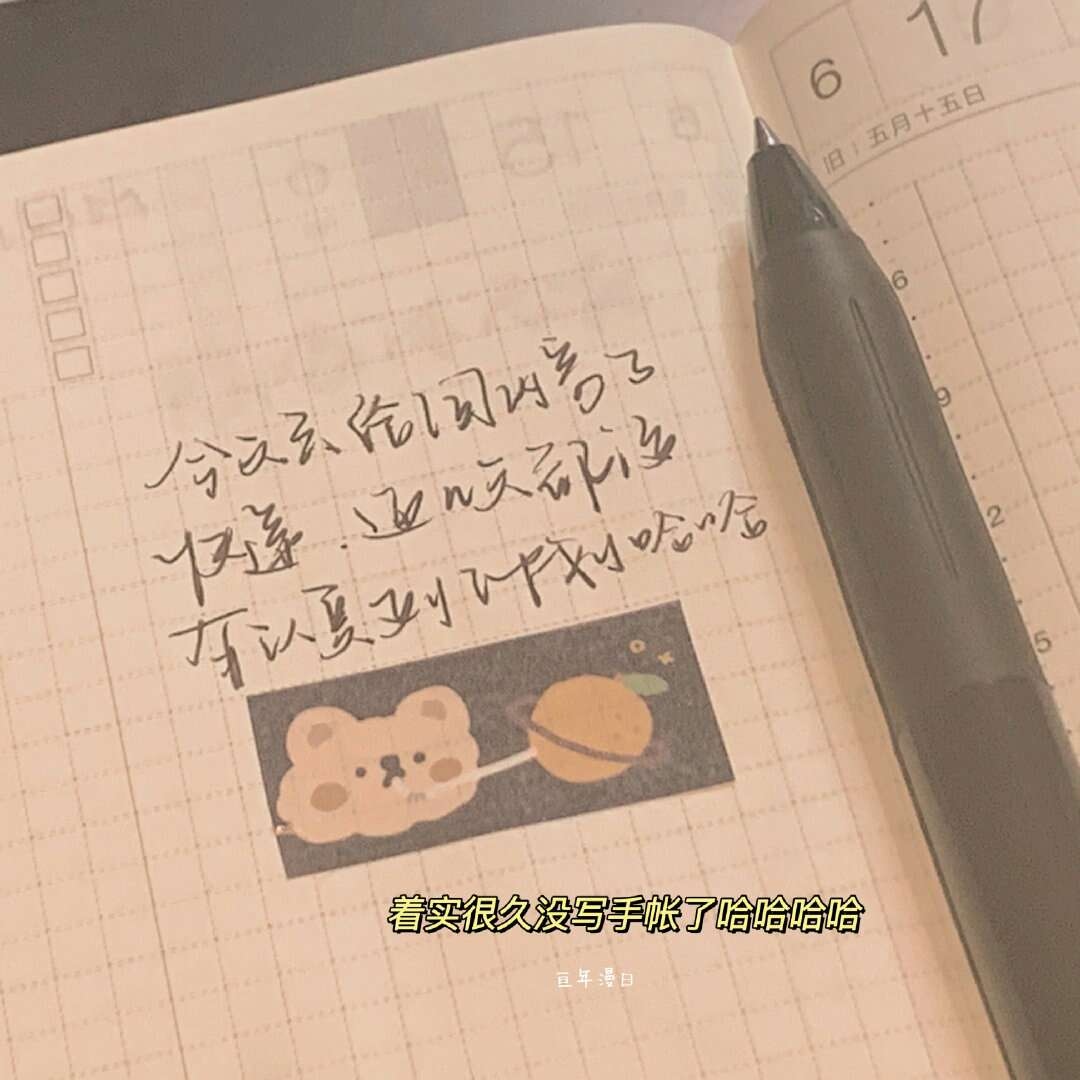 6
17
旧：五月十五日
6
9
2
5
今天去给国内寄了
快递.这几天都没
有认真
哈哈
着实很久没写手帐了哈哈哈哈
亘年漫日